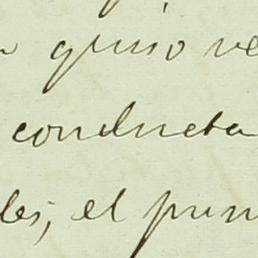 quiso ve
conducta
les, el prin